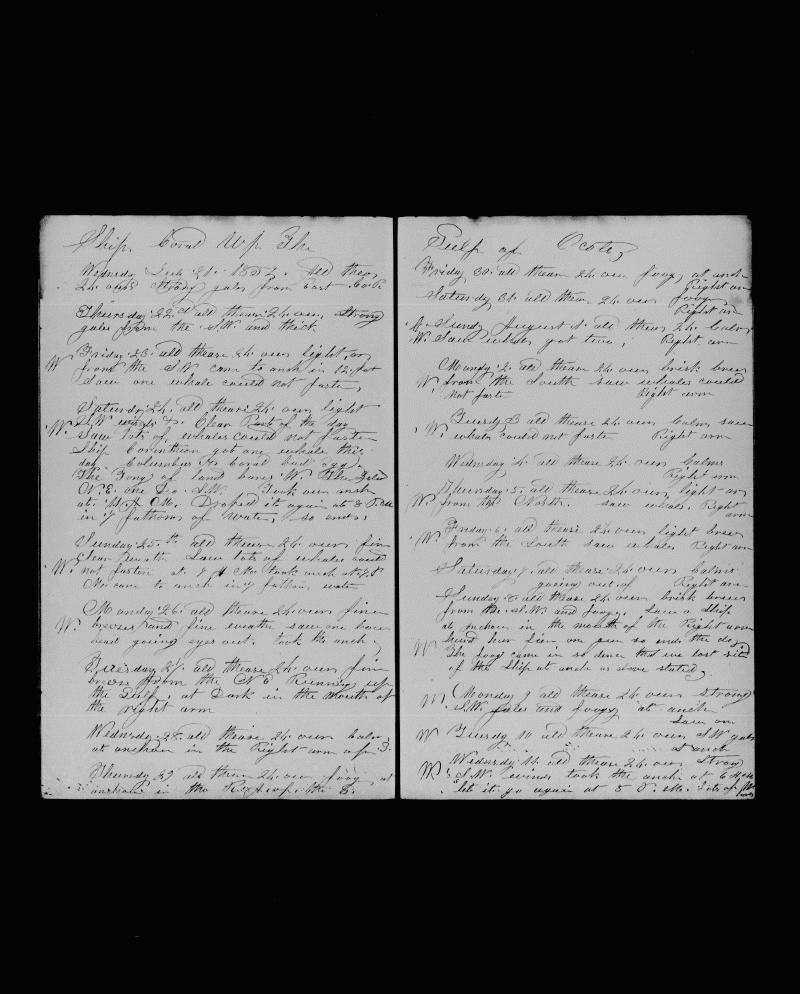 Ship Coral Up The
Wednsday July 21 1852 All these
24 ours strong gales from East
Thursday 22d all thease 24 ours Strong
gales from the S.W. and thick
W Friday 23 all thease 24 ours light
from the S.W. came to anch in 12
saw one whale could not fasten
Saturday 24 all thease 24 ours light
W. S.W. Clear Part of the day
Saw lots of whales could not fasten
Ship Corinthian got one whale this
day Columbus & Coral
The of land bares W. The
N.E. one S.W. Took our anch
at A.M. Droped it again at 8 P.M.
in 7 fathoms of water, so ends
Sunday 25th all thease 24 ours fine
clear weath Saw lots of whales could
W. not fasten at A M. took anch at
M. came to anch in 7 fathom water
Monday 26 all thease 24 ours fine
W. breezes and fine weath saw one bow
head going eyes out. took the anch
Tuesday 27 all thease 24 ours fine
breeze from the N E Running up
the Gulf, at Dark in the mouth of
the right arm
Wednsday 28 all thease 24 ours Calm
at anchor in the Right arm
Thursday 29 all these 24 ours foogy at
anchor in the
Gulf of Ocota
Friday 30 all thease 24 ours foogy at anch
Right arm
Saturday 31 all thease 24 ours foogy
Right arm
Sundy August 1 all these 24 Calm
W. Saw whales got two, Right arm
Mondy 2 all thease 24 ours brisk brees
W. from the South saw whales could
not fasten Right arm
Tuesdy 3 all thease 24 ours Calm saw
W. whales could not fasten Right arm
Wednsday 4 all thease 24 ours Calms
Right arm
Thursday 5 all thease 24 ours light
W. from the saw whales. Right
arm
Friday 6 all thease 24 ours light brees
W. from the South saw whales Right arm
Saturday 7 all thease 24 ours Calms
going out of Right arm
Sunday 8 all thease 24 ours brisk brees
from the S.W. and foogy. Saw a Ship
at anchor in the mouth of the Right arm
heard her so ends the day
W The foog came in so dence that we lost
of the Ship at anch as above stated
W Monday 9 all thease 24 ours strong
S.W. gales and foogy at anch
Saw
W Tuesdy 10 all thease 24 ours S.W gales
at anch
W Wednsdy 11 all thease 24 ours Strong
S.W. winds took the anch at 6
let it go again at 5 P.M. Lots of